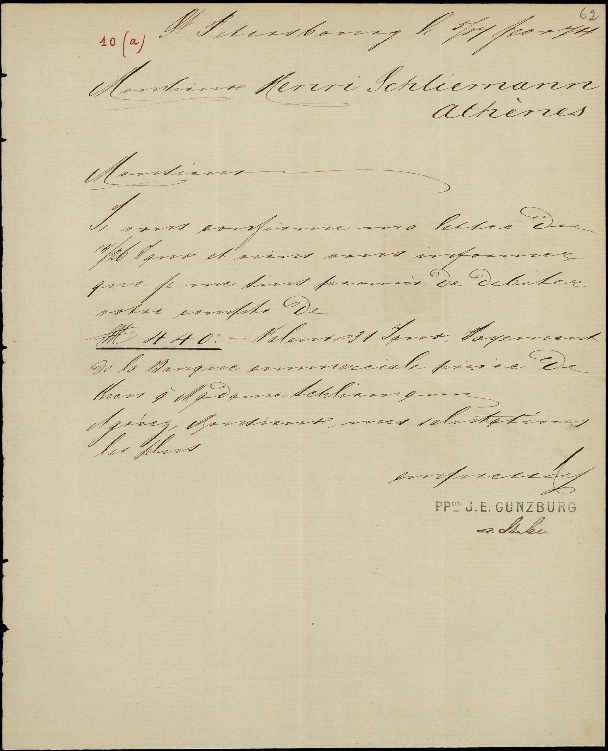 62
10 (a)
St Petersbourg le 5/17
Monsieur Henri Schliemann
Athènes
Monsieur
Je vous confirme ma lettre de
14/26 et viens vous informer
que je me suis permis de débiter
votre compte de
440.- Valeur 31 Payement
de la Banque commerciale privée de
à Madame Schliemann
Agréez, Monsieur, mes salutations
les plus
empressées
PPon J.E. GUNZBURG